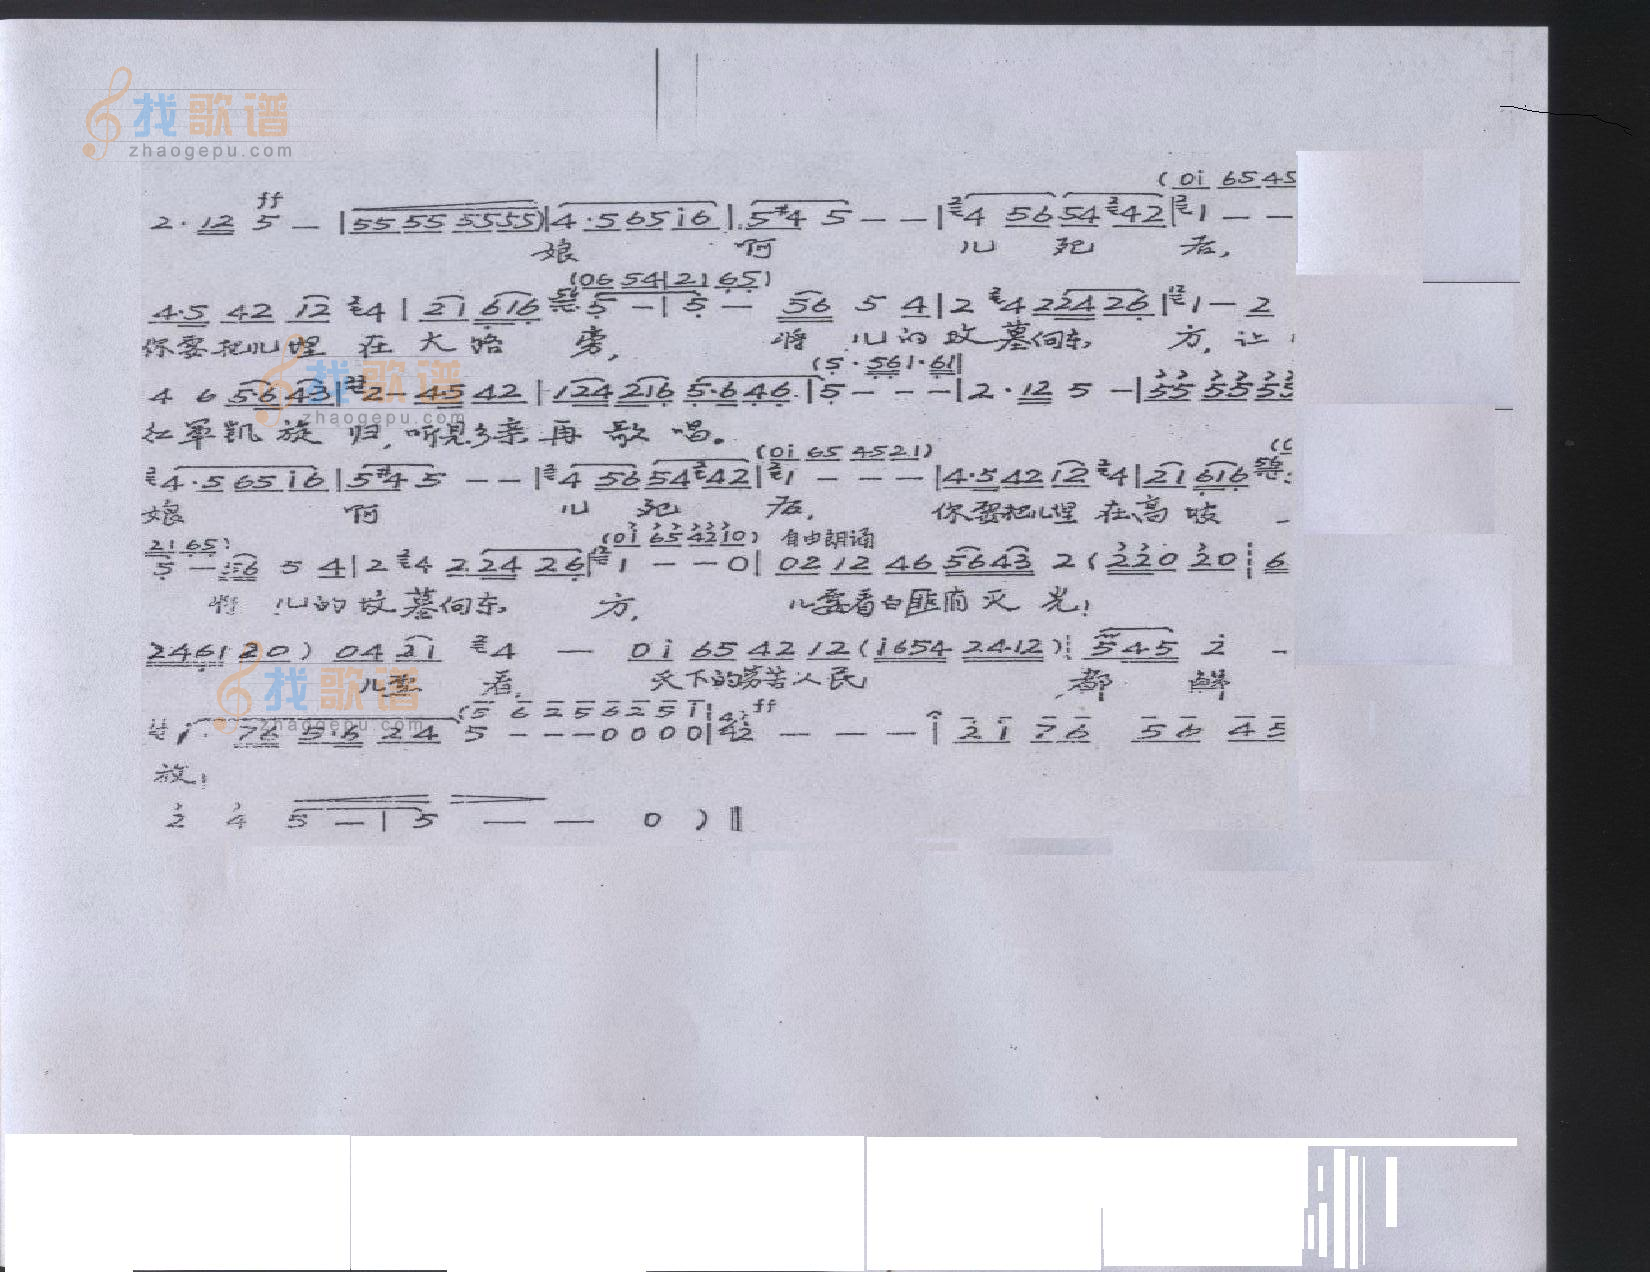 找歌谱
zhaogepu.com
(0i 6545
ff
2·12 5 — |55 55 5555)|4·565i6|5#4 5 — —|²4 56 54²42|²1 — —
娘 啊 儿 死 后,
(06 54|21 65)
4·5 42 i2 ²4 | 2i 616 5 —|5 — 56 5 4|2 ²4 224 26|1 — 2
你要把儿埋 在 大 路 旁, 将 儿的坟墓向东 方, 让
(5·561·61|
4 6 5643|2 — 4542|124216 5·646·|5 — — —|2·12 5 —|55 5555
红军凯旋 归, 听见乡亲再 歌 唱。
找歌谱
zhaogepu.com
(0i 65 4521)
²4·565i6|5#45 — —|²4 5654²42|²1 — — —|4·542i2 ²4|2i 616
娘 啊 儿 死 后, 你要把儿埋 在高 坡
21 65) (0i 65 42i0) 自由朗诵
5 — 56 5 4|2 ²4 2 24 26|1 — — 0| 02 12 46 5643 2 (220 20 ¦ 6
将 儿的坟墓向东 方, 儿要看白匪消灭光!
2461 20) 04 2i ²4 — 0i 65 42 12(i654 24·12)¦ 54·5 2 —
儿要 看, 天下的劳苦人民 都 解
找歌谱
zhaogepu.com
(5 6 2 5 6 2 5 1¦ ff
i· 76 5·6 24 5 — — — 0 0 0 0| — — —| 2 i 76 56 45
放!
2 4 5 — | 5 — — 0 )‖